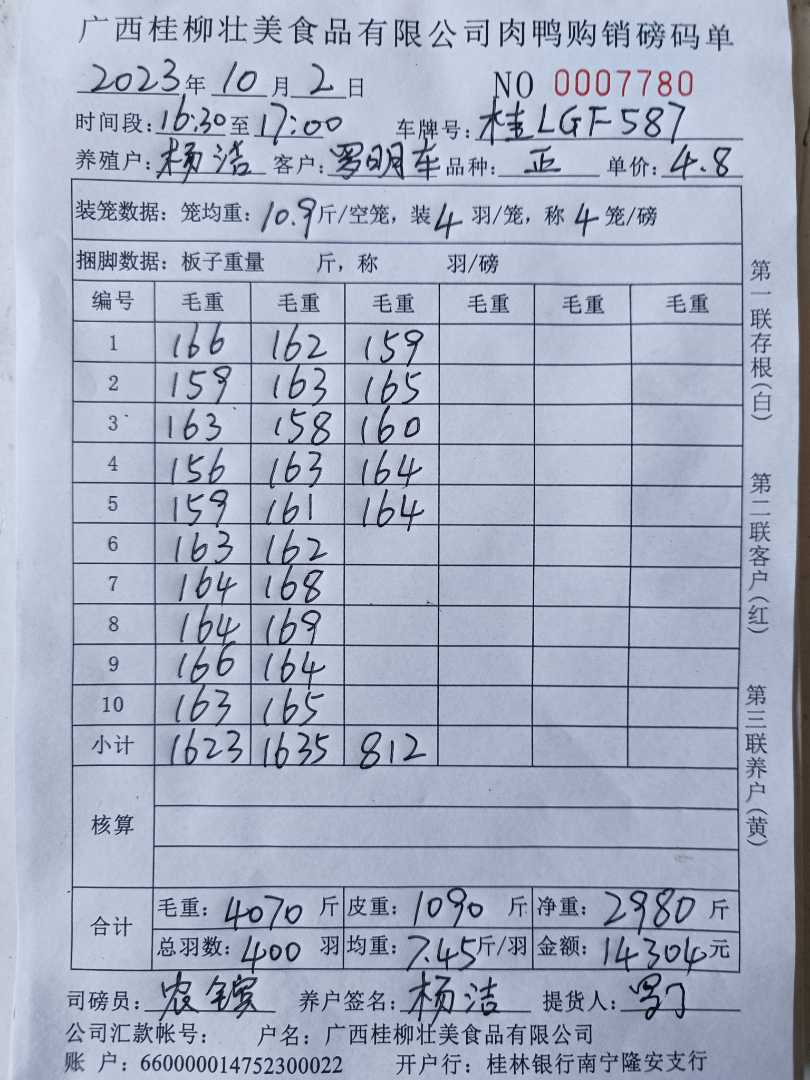 广西桂柳壮美食品有限公司肉鸭购销磅码单
2023年 10月 2日 NO 0007780
时间段:16:30至17:00 车牌号:桂LGF587
养殖户:杨洁 客户:罗明车 品种:正 单价:4.8
装笼数据：笼均重：10.9斤/空笼，装4羽/笼，称4笼/磅
捆脚数据：板子重量 斤，称 羽/磅
编号 毛重 毛重 毛重 毛重 毛重 毛重
1 166 162 159
2 159 163 165
3 163 158 160
4 156 163 164
5 159 161 164
6 163 162
7 164 168
8 164 169
9 166 164
10 163 165
小计 1623 1635 812
核算
合计
毛重：4070斤 皮重：1090斤 净重：2980斤
总羽数：400羽 均重：7.45斤/羽 金额：14304元
司磅员: 养户签名:杨洁 提货人:
公司汇款帐号： 户名：广西桂柳壮美食品有限公司
账 户：660000014752300022 开户行：桂林银行南宁隆安支行
第一联存根(白)
第二联客户(红)
第三联养户(黄)